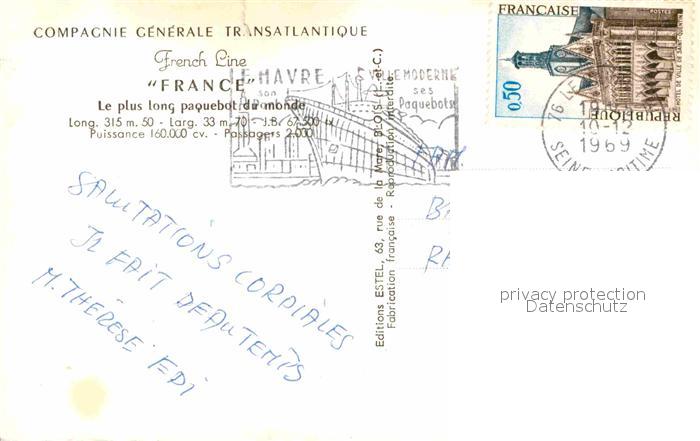 COMPAGNIE GÉNÉRALE TRANSATLANTIQUE
French Line
"FRANCE"
Le plus long paquebot du monde
Long. 315 m. 50 - Larg. 33 m. 70 - J.B. 67.500 tx
Puissance 160.000 cv. - Passagers 2.000
LE HAVRE
son
VILLE MODERNE
ses
Paquebots
Editions ESTEL, 63, rue de la Mare, BLOIS (L.-et-C.)
Fabrication française - Reproduction interdite
FRANÇAISE
POSTES
HOTEL DE VILLE DE SAINT-QUENTIN
REPUBLIQUE
0,50
76 LE
10-12
1969
SEINE MARITIME
SALUTATIONS CORDIALES
IL FAIT BEAU TEMPS
M. THÉRÈSE
privacy protection
Datenschutz